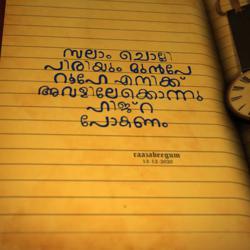 സലാം ചൊല്ലി
പിരിയും മുൻപേ
റൂഹേ എനിക്ക്
അവളിലേക്കൊന്നു
ഹിജ്റ
പോകണം
raajabeegum
12-12-2020